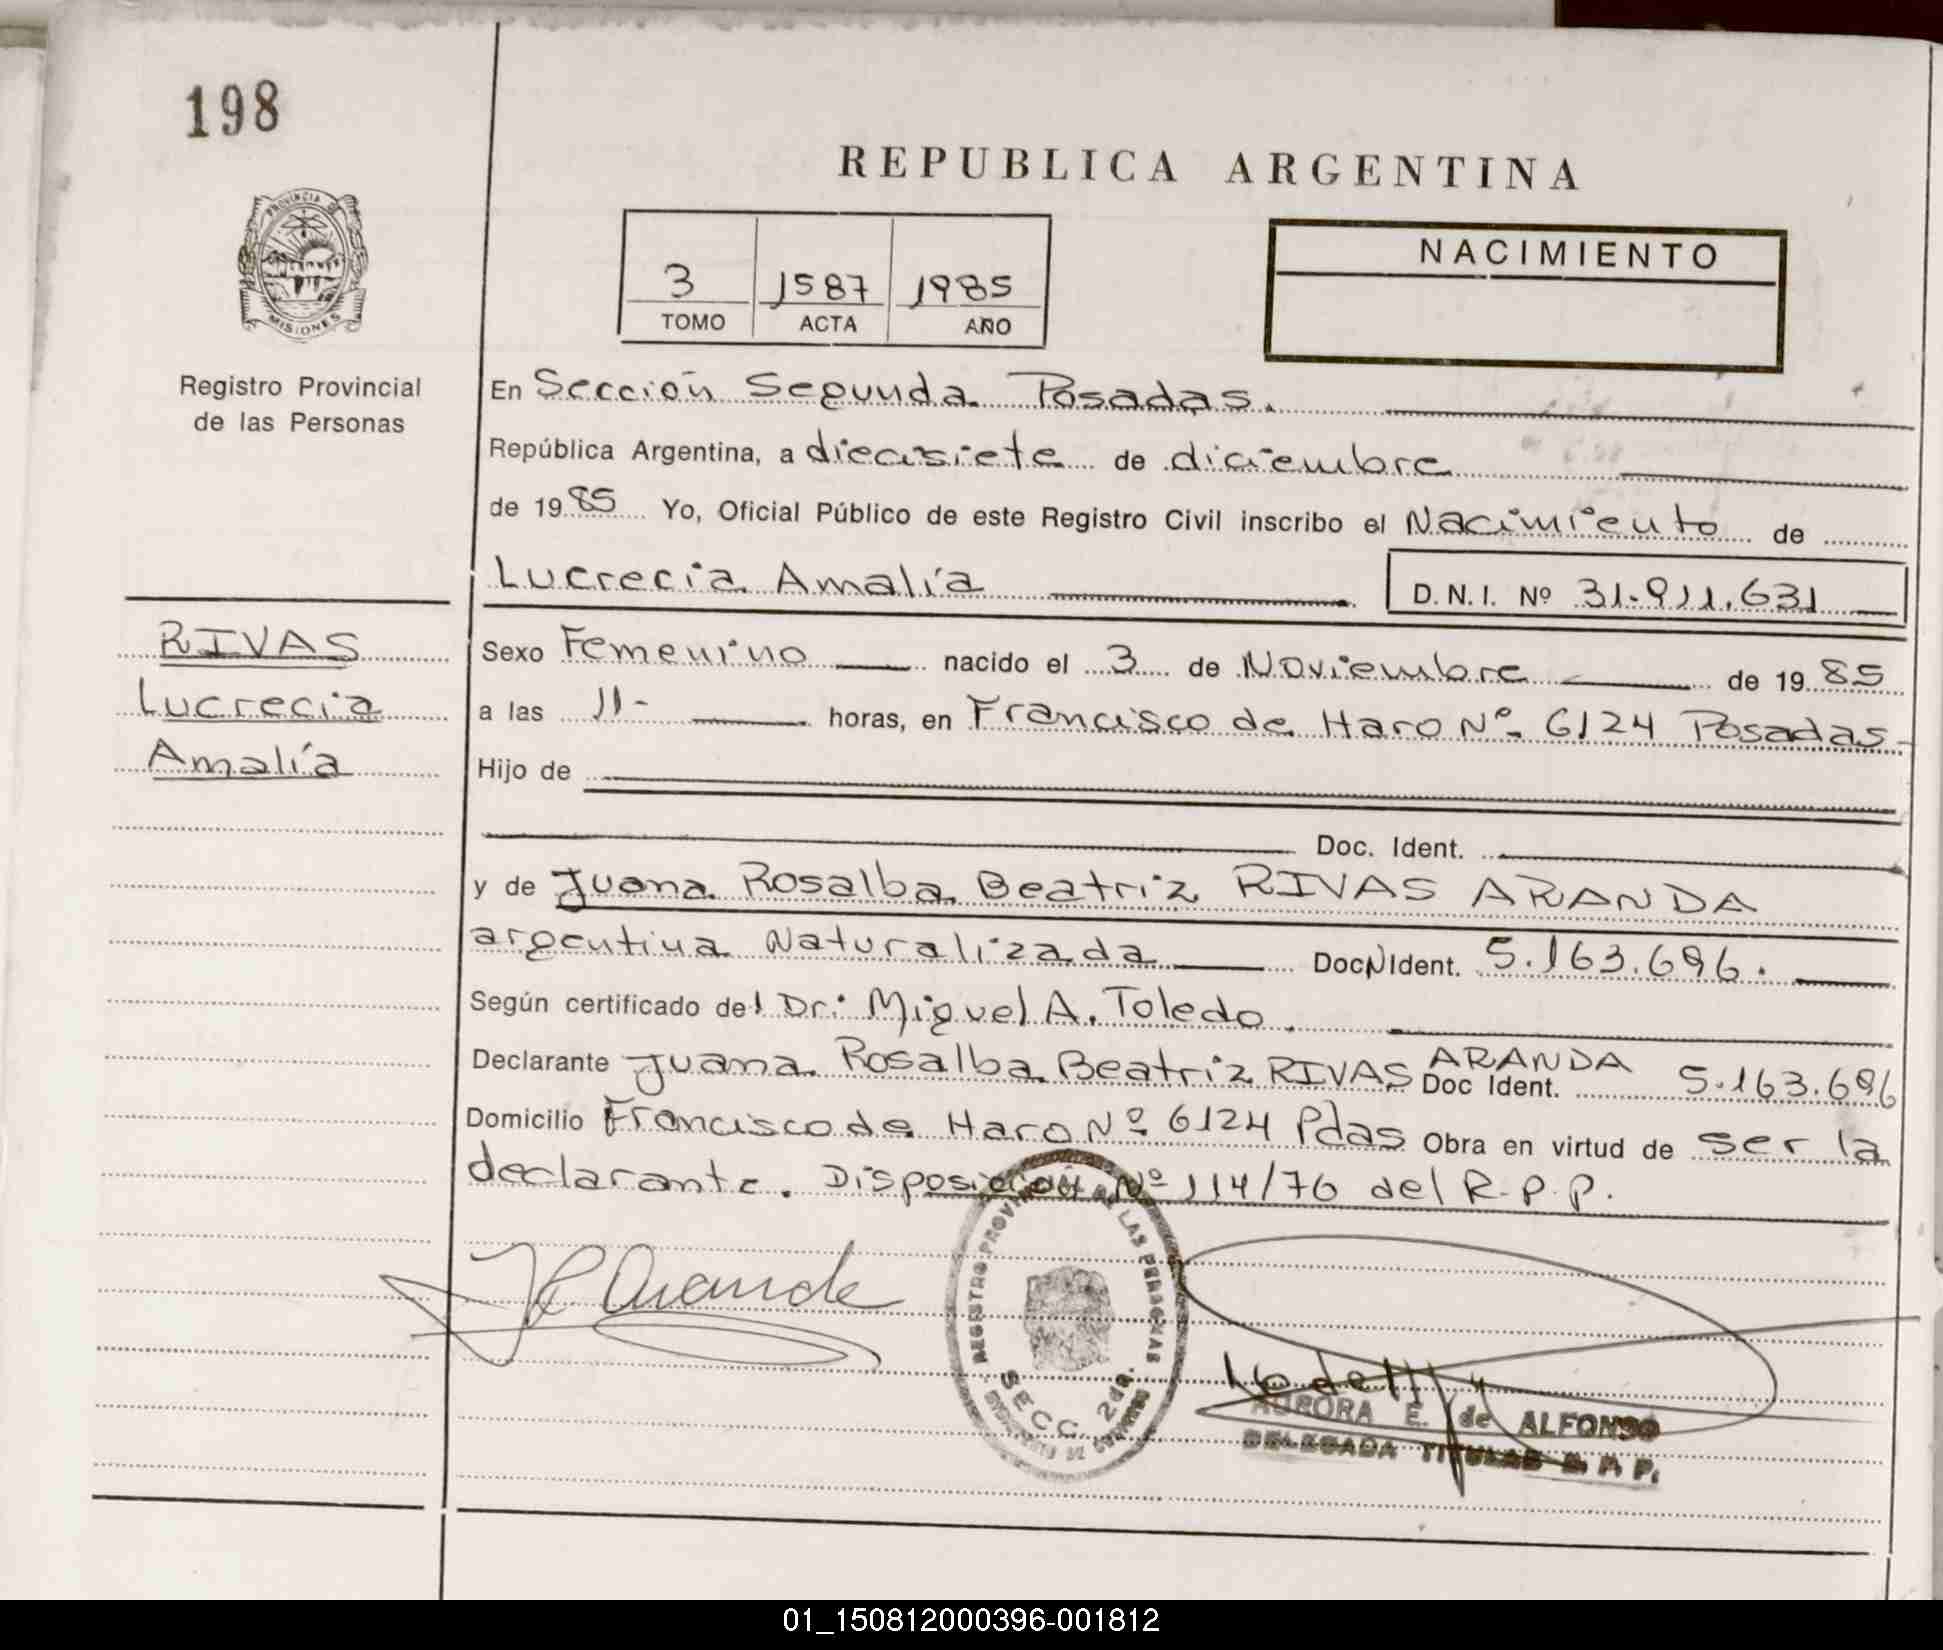 198
REPUBLICA ARGENTINA
PROVINCIA DE
MISIONES
Registro Provincial
de las Personas
3 1587 1985
TOMO ACTA AÑO
NACIMIENTO
En Sección Segunda Posadas.
República Argentina, a diecisiete de diciembre
de 1985 Yo, Oficial Público de este Registro Civil inscribo el Nacimiento de
Lucrecia Amalía D.N.I. Nº 31.911.631
RIVAS
Lucrecia
Amalía
Sexo Femenino nacido el 3 de Noviembre de 1985
a las 11- horas, en Francisco de Haro Nº 6124 Posadas-
Hijo de
Doc. Ident.
y de Juana Rosalba Beatriz RIVAS ARANDA
argentina Naturalizada Doc N Ident. 5.163.696.
Según certificado del Dr: Miguel A. Toledo.
Declarante Juana Rosalba Beatriz RIVAS ARANDA Doc Ident. 5.163.696
Domicilio Francisco de Haro Nº 6124 Pdas Obra en virtud de ser la
declarante. Disposición Nº 114/76 del R.P.P.
REGISTRO PROVINCIAL DE LAS PERSONAS
SECC. 2da.
AURORA E. de ALFONSO
DELEGADA TITULAR R. P. P.
01_150812000396-001812